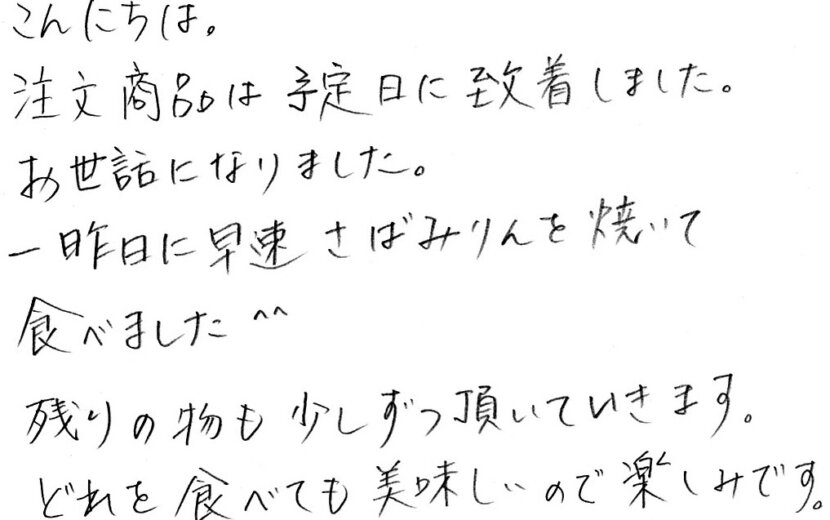 こんにちは。
注文商品は予定日に致着しました。
お世話になりました。
一昨日に早速さばみりんを焼いて
食べました^^
残りの物も少しずつ頂いていきます。
どれを食べても美味しいので楽しみです。